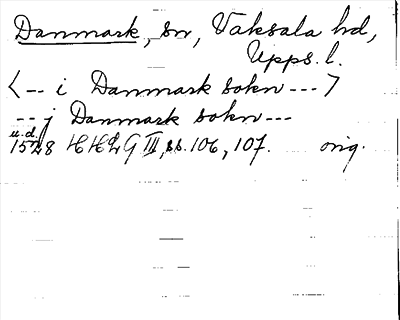 Danmark, sn, Vaksala hd,
Upps. l.
<-- i Danmark sokn --->
-- j Danmark sokn ---
u.d.
1528 HHLG III, s.s. 106, 107. orig.